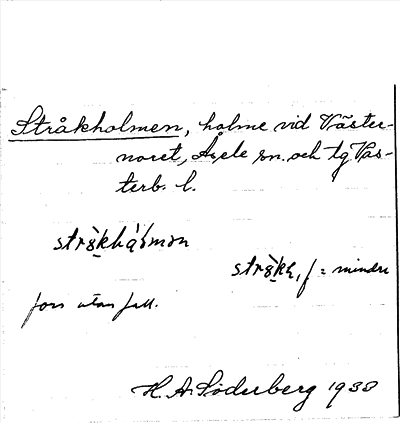 Stråkholmen, holme vid Väster-
noret, Åsele sn. och tg Väs-
terb. l.
stråkhålmən
stråkh, f = mindre
fors utan fall.
H. A. Söderberg 1938